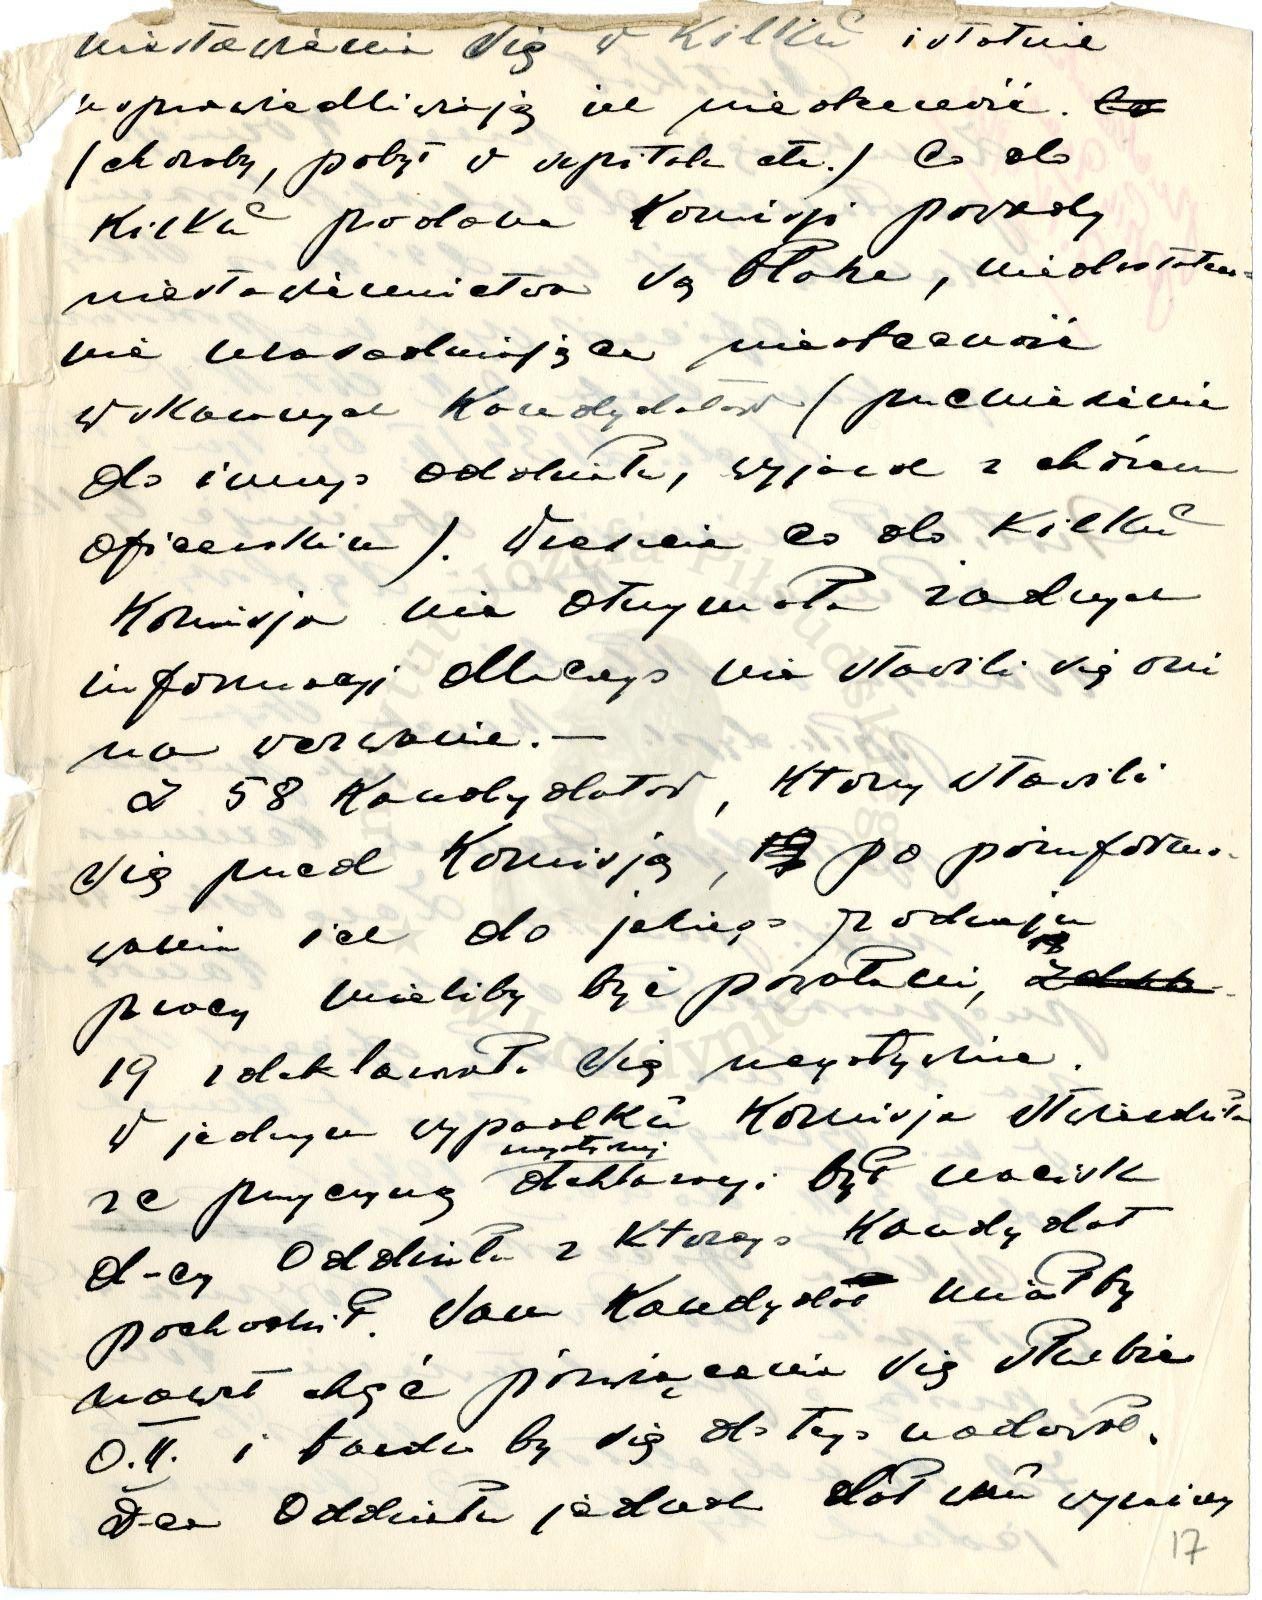 niestawienia się w kilku istotnie
usprawiedliwiają ich nieobecność. Co
(choroby, pobyt w szpitalu etc.) Co do
kilku podane Komisji powody
niestawiennictwa są błahe, niedostatecz-
nie uzasadniające nieobecność
wskazanych Kandydatów (przeniesienie
do innego oddziału, wyjazd z chórem
oficerskim). Wreszcie co do kilku
Komisja nie otrzymała żadnych
informacji dlaczego nie stawili się oni
na wezwanie. —
Z 58 Kandydatów, którzy stawili
się przed Komisją, 19 po poinformo-
waniu ich do jakiego rodzaju
pracy mieliby być powołani,
19 zdeklarowało się negatywnie.
W jednym wypadku Komisja stwierdziła
że przyczyną negatywnej deklaracji był nacisk
d-cy Oddziału z którego Kandydat
pochodził. Sam Kandydat miałby
nawet chęć poświęcenia się służbie
O.II. i bardzo by się do tego nadawał.
D-ca Oddziału jednak dał mu wyraźny
17
Instytut Józefa Piłsudskiego w Londynie